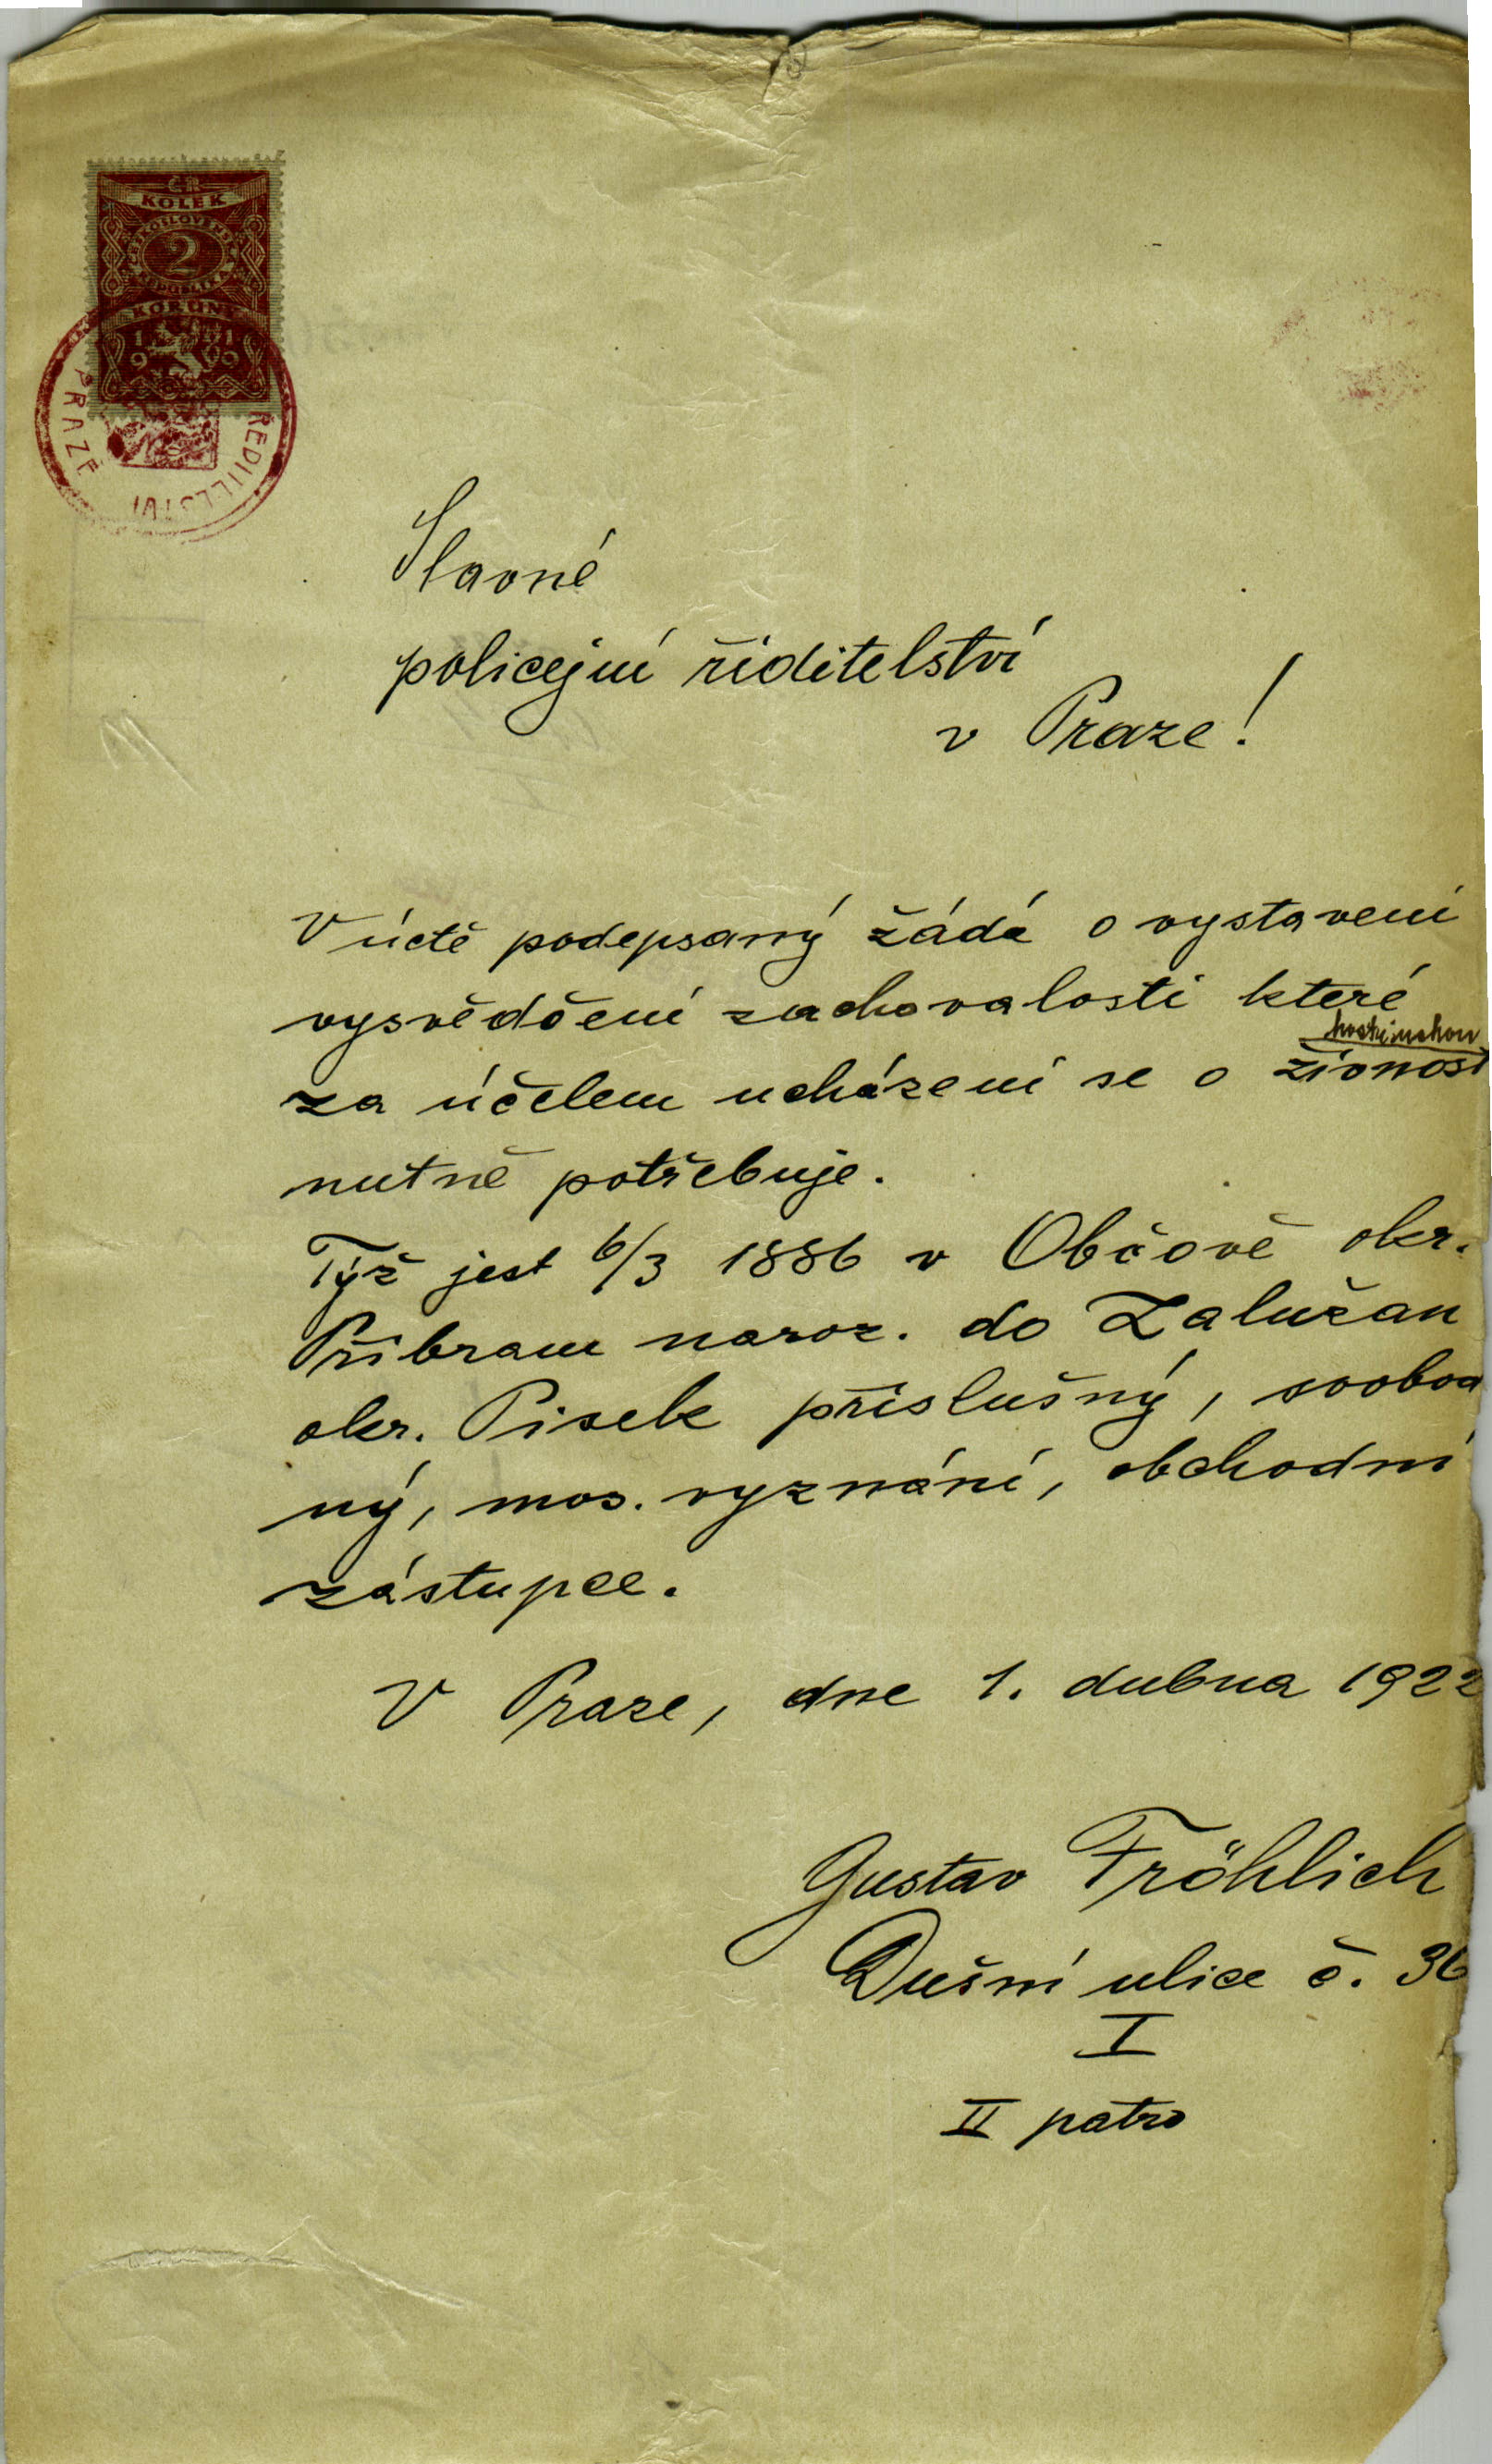 ČR
KOLEK
ČESKOSLOVENSKÁ
2
REPUBLIKA
KORUNY
1 1
9 9
PRAZE
ŘEDITELSTVÍ
Slavné
policejní řiditelství
v Praze!
V úctě podepsaný žádá o vystavení
vysvědčení zachovalosti které
hostinskou
za účelem ucházení se o živnost
nutně potřebuje.
Týž jest 6/3 1886 v Občově okr.
Příbram naroz. do Zalužan
okr. Pisek příslušný, svobod
ný, mos. vyznání, obchodní
zástupce.
V Praze, dne 1. dubna 1922
Gustav Fröhlich
Dušní ulice č. 36
I
II patro